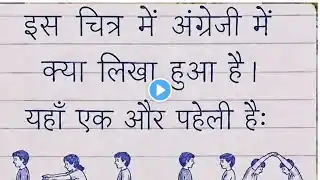 इस चित्र में अंग्रेजी में
क्या लिखा हुआ है।
यहाँ एक और पहेली है: